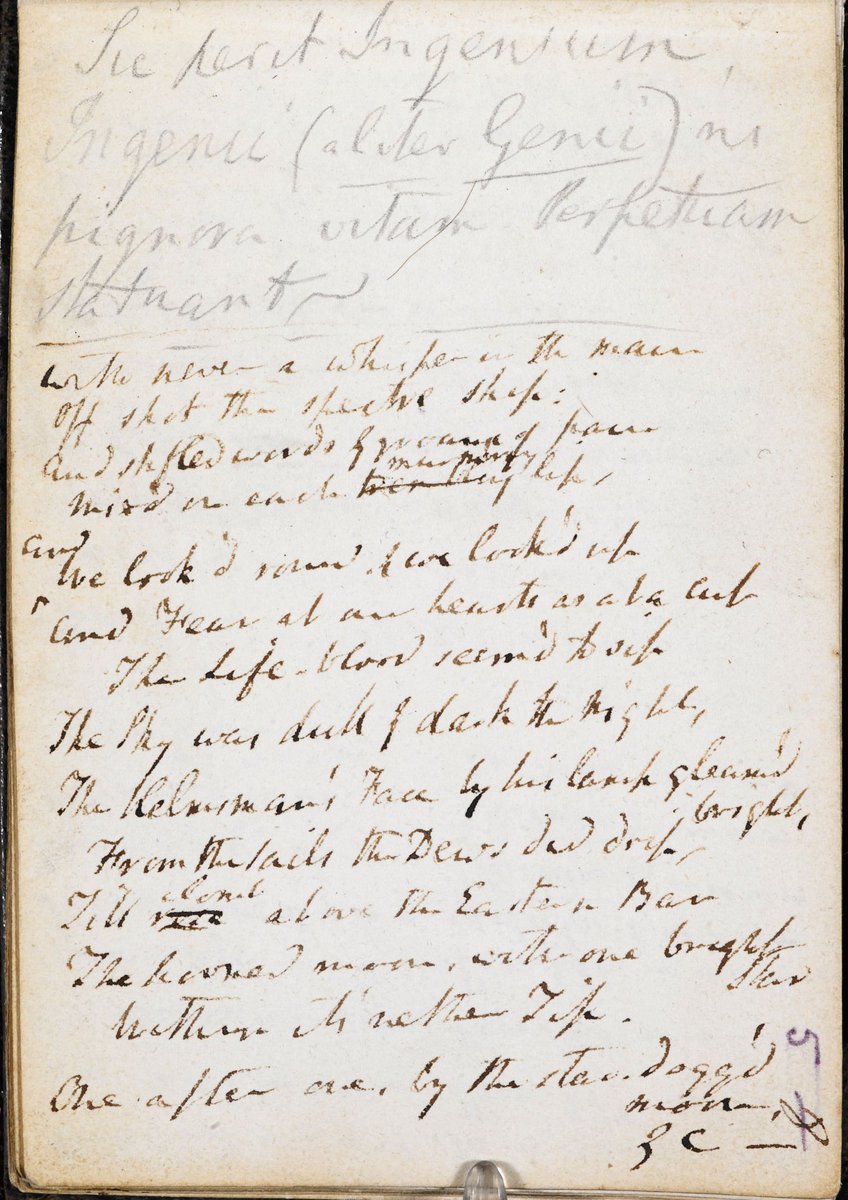 Sic perit Ingenium,
Ingenii (aliter Genii) ni
pignora vitam Perpetuam
statuant
with never a whisper in the main
Off shot the spectre ship:
And stifled words & groans of pain
murmuring
Mix'd on each trembling lip,
and
We look'd round & we look'd up
And Fear at our hearts as at a cup
The Life-blood seem'd to sip
The Sky was dull & dark the Night,
The Helmsman's Face by his lamp gleam'd
bright,
From the sails the Dews did drip,
clomb
Till rose above the Eastern Bar
The horned moon, with one bright
Star
Within its nether Tip.
One after one, by the star-dogg'd
moon,
&c —